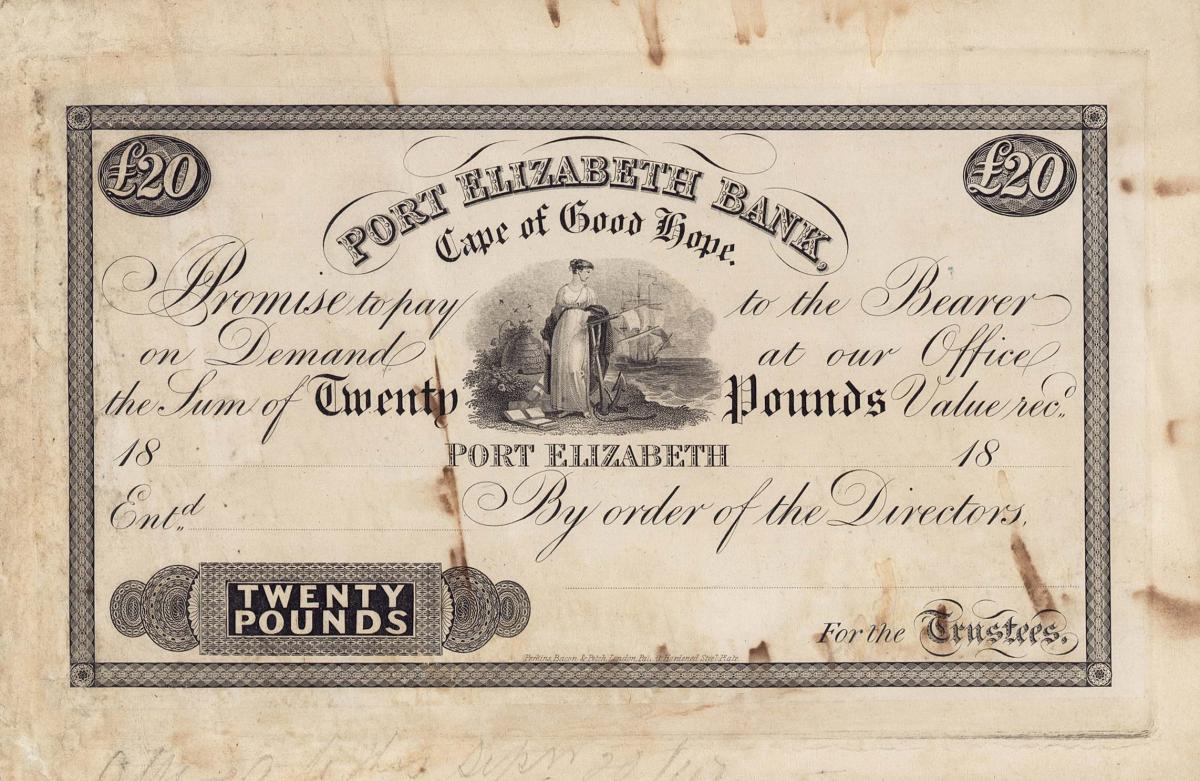 £20 £20
PORT ELIZABETH BANK,
Cape of Good Hope.
Promise to pay to the Bearer
on Demand at our Office
the Sum of Twenty Pounds Value rec.d
18 PORT ELIZABETH 18
Ent.d By order of the Directors,
TWENTY
POUNDS
For the Trustees.
Perkins, Bacon & Petch, London, Pat. Hardened Steel Plate